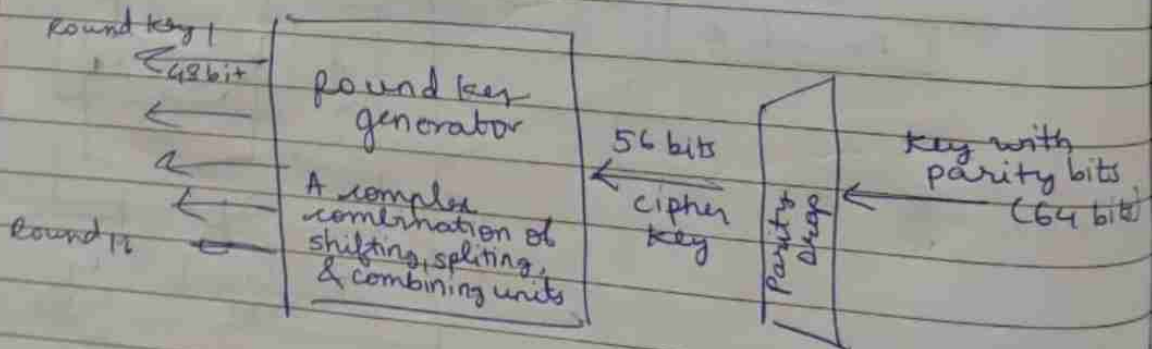 Round key 1
48 bit
Round key
generator
A complex
combination of
shifting, spliting,
& combining units
Round 16
56 bits
cipher
key
Parity
Drop
key with
parity bits
(64 bit)